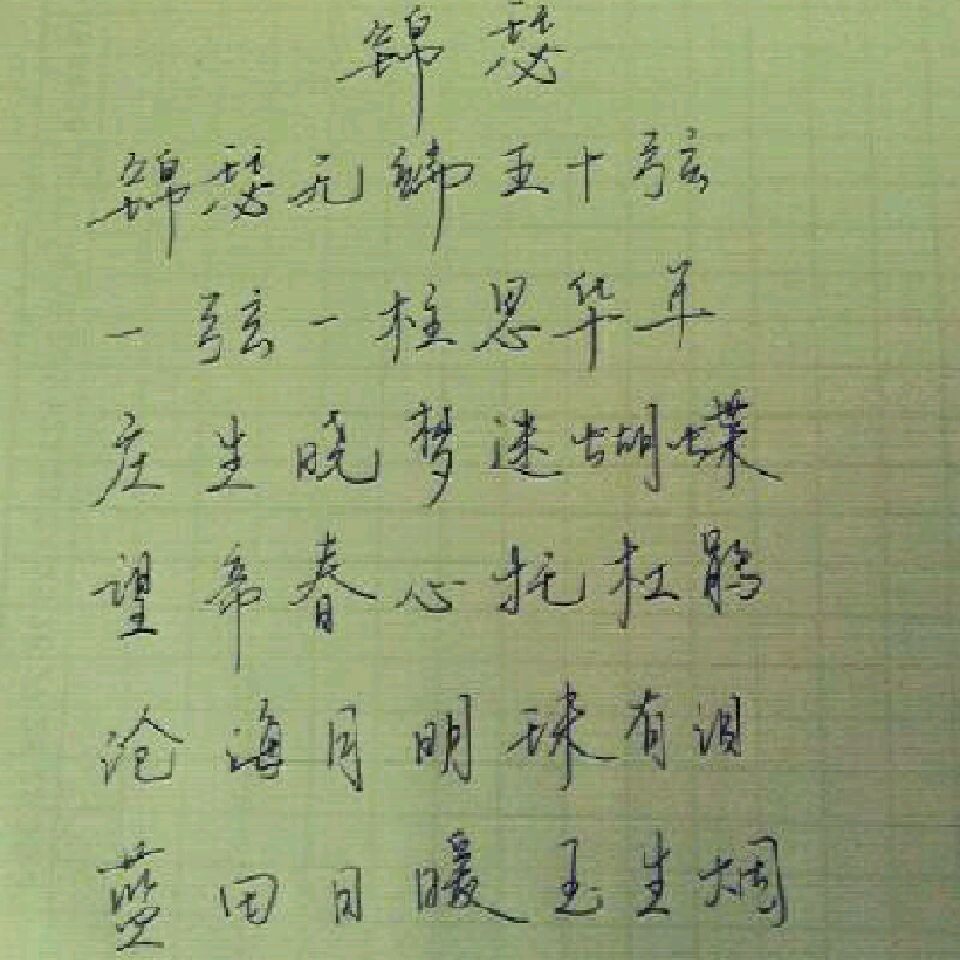 锦瑟
锦瑟无端五十弦
一弦一柱思华年
庄生晓梦迷蝴蝶
望帝春心托杜鹃
沧海月明珠有泪
蓝田日暖玉生烟